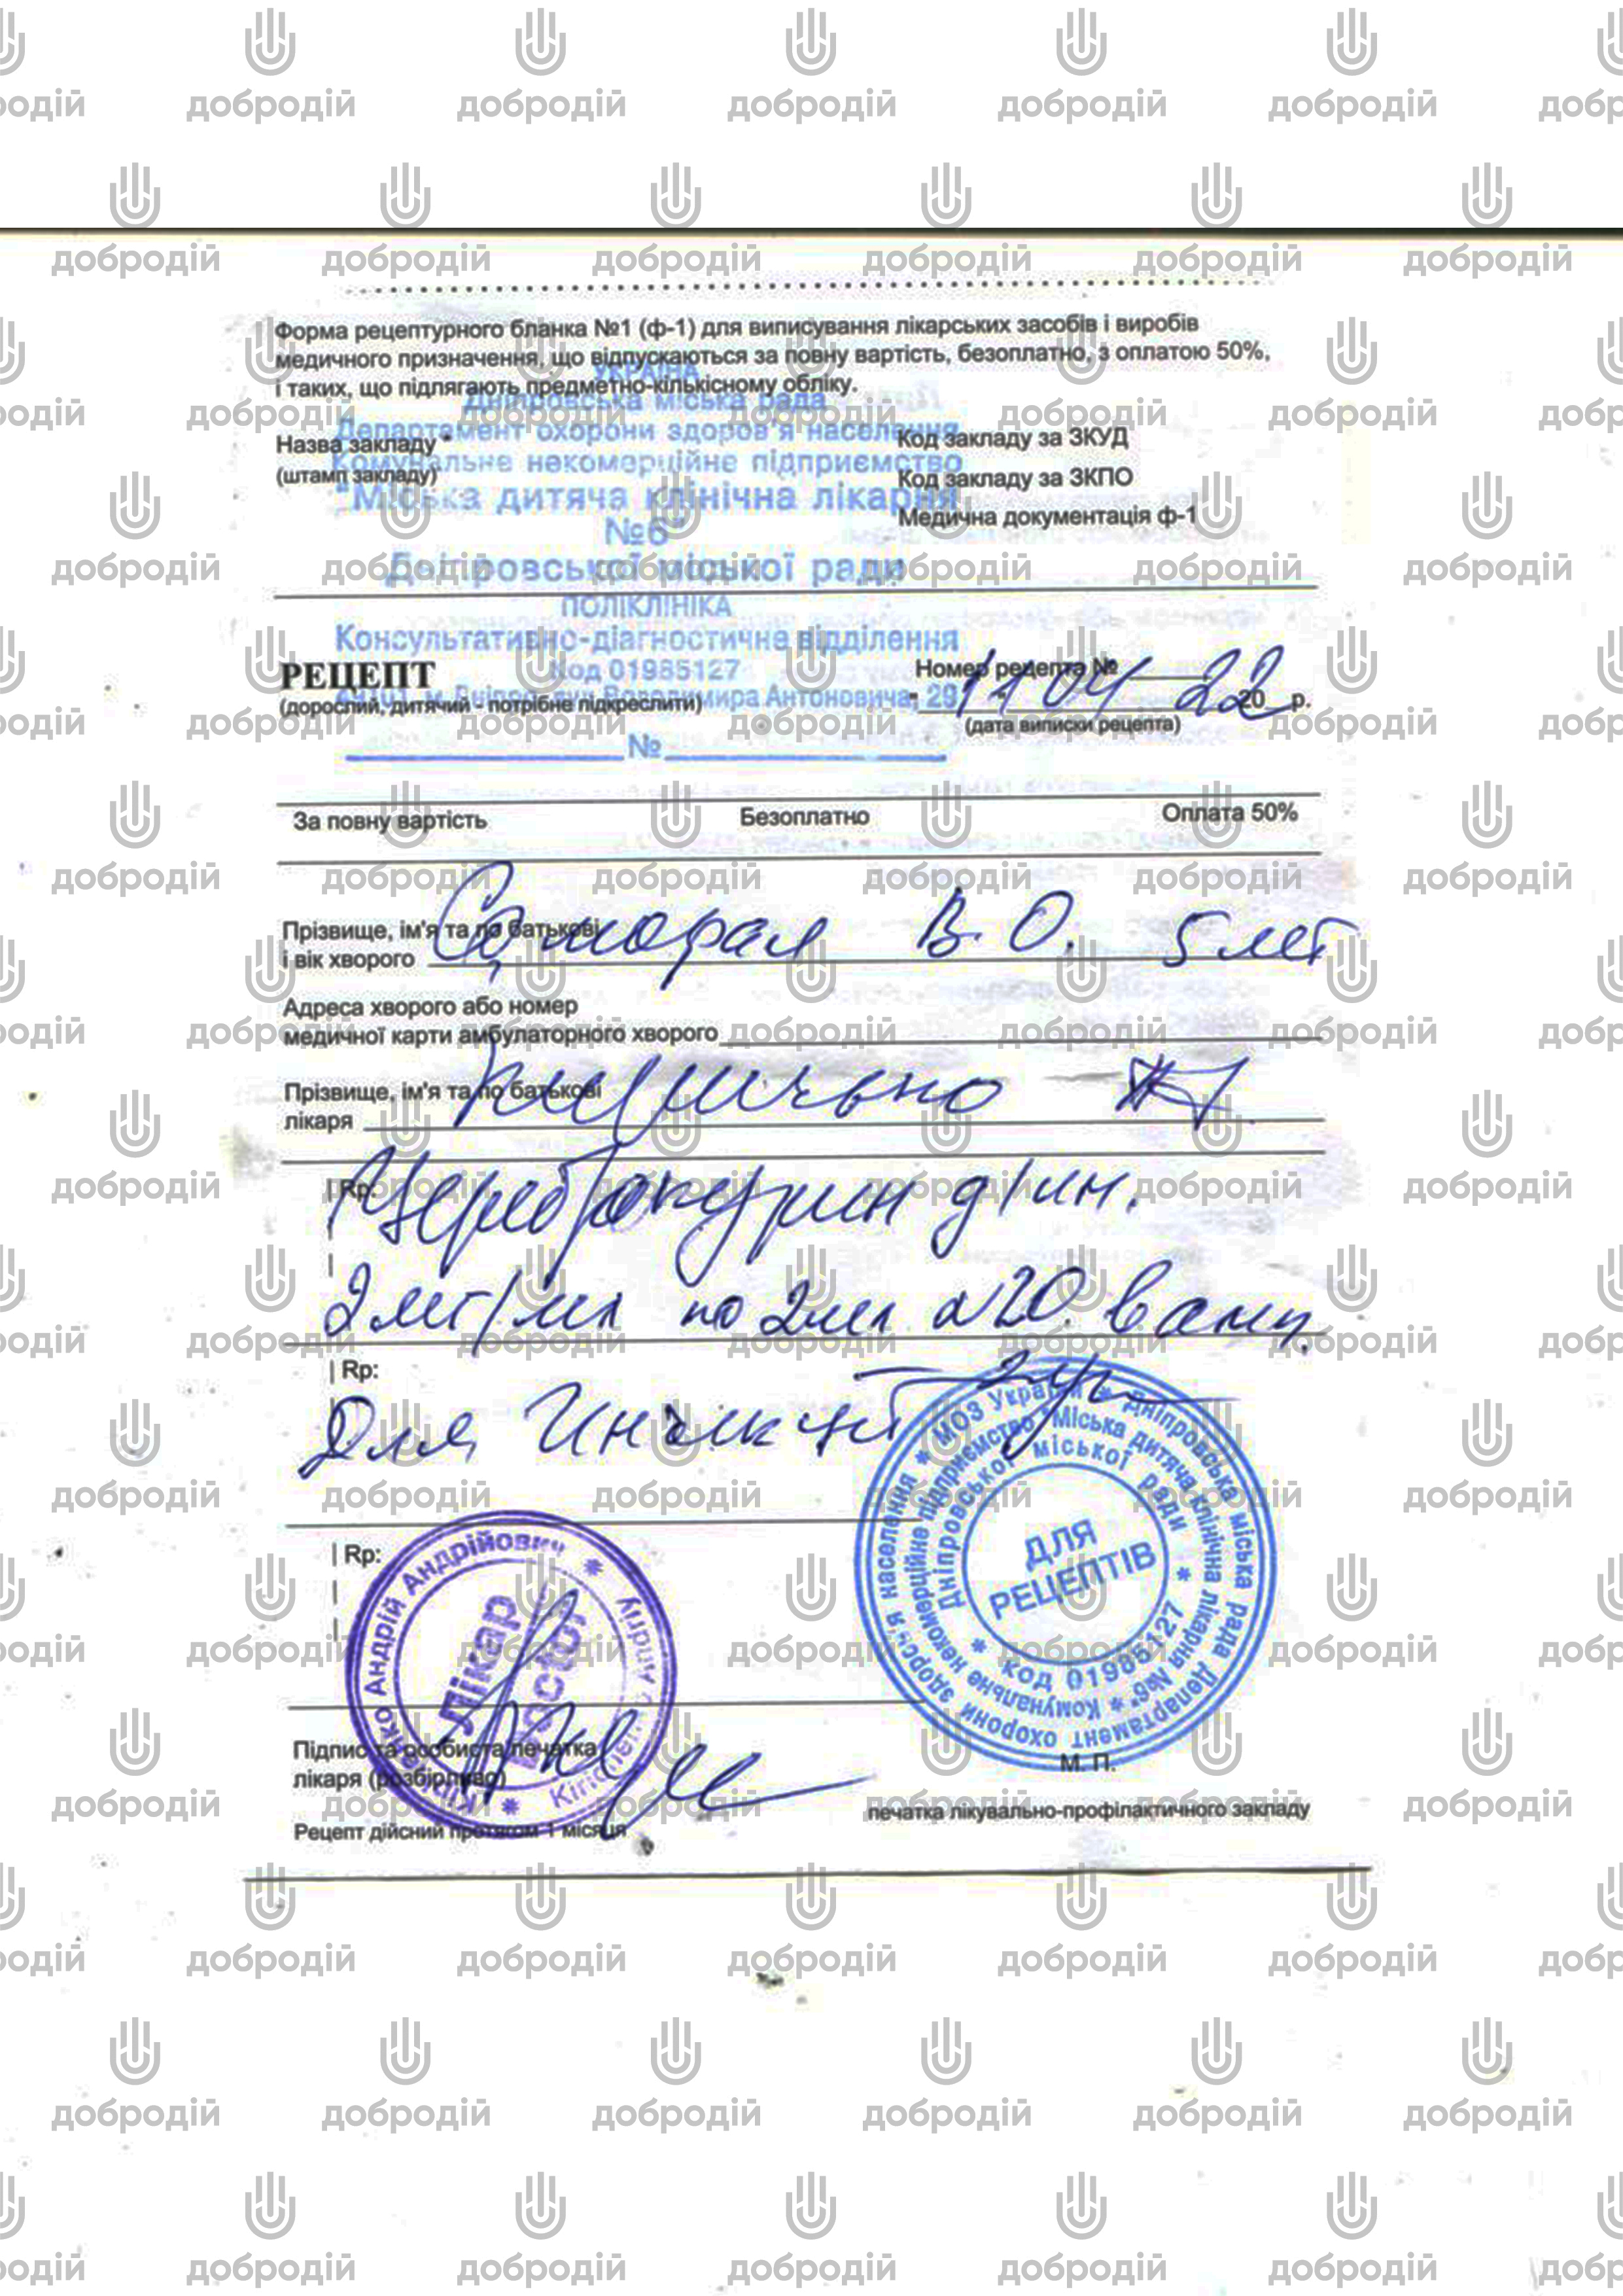 Форма рецептурного бланка №1 (ф-1) для виписування лікарських засобів і виробів
медичного призначення, що відпускаються за повну вартість, безоплатно, з оплатою 50%,
і таких, що підлягають предметно-кількісному обліку.
УКРАЇНА
Дніпровська міська рада
Департамент охорони здоров'я населення
Комунальне некомерційне підприємство
"Міська дитяча клінічна лікарня
№6"
Дніпровської міської ради
ПОЛІКЛІНІКА
Консультативно-діагностичне відділення
Код 01985127
м. Дніпро, вул. Володимира Антоновича, 29
№
Назва закладу
(штамп закладу)
Код закладу за ЗКУД
Код закладу за ЗКПО
Медична документація ф-1
РЕЦЕПТ
(дорослий, дитячий - потрібне підкреслити)
Номер рецепта №
11 04 22 20 р.
(дата виписки рецепта)
За повну вартість Безоплатно Оплата 50%
Прізвище, ім'я та по батькові
і вік хворого В. О. 5 лет
Адреса хворого або номер
медичної карти амбулаторного хворого
Прізвище, ім'я та по батькові
лікаря
Rp: Цереброкурин д/ин.
2 мг/мл по 2мл №20. в амп.
Rp:
Для Инъекций
Rp:
Андрій Андрійович
Лікар
МОЗ України * Дніпровська міська рада Департамент охорони здоров'я населення *
Комунальне некомерційне підприємство "Міська дитяча клінічна лікарня №6" *
Дніпровської міської ради * код 01985127 *
ДЛЯ
РЕЦЕПТІВ
Підпис та особиста печатка
лікаря (розбірливо)
М. П.
печатка лікувально-профілактичного закладу
Рецепт дійсний протягом 1 місяця
добродій